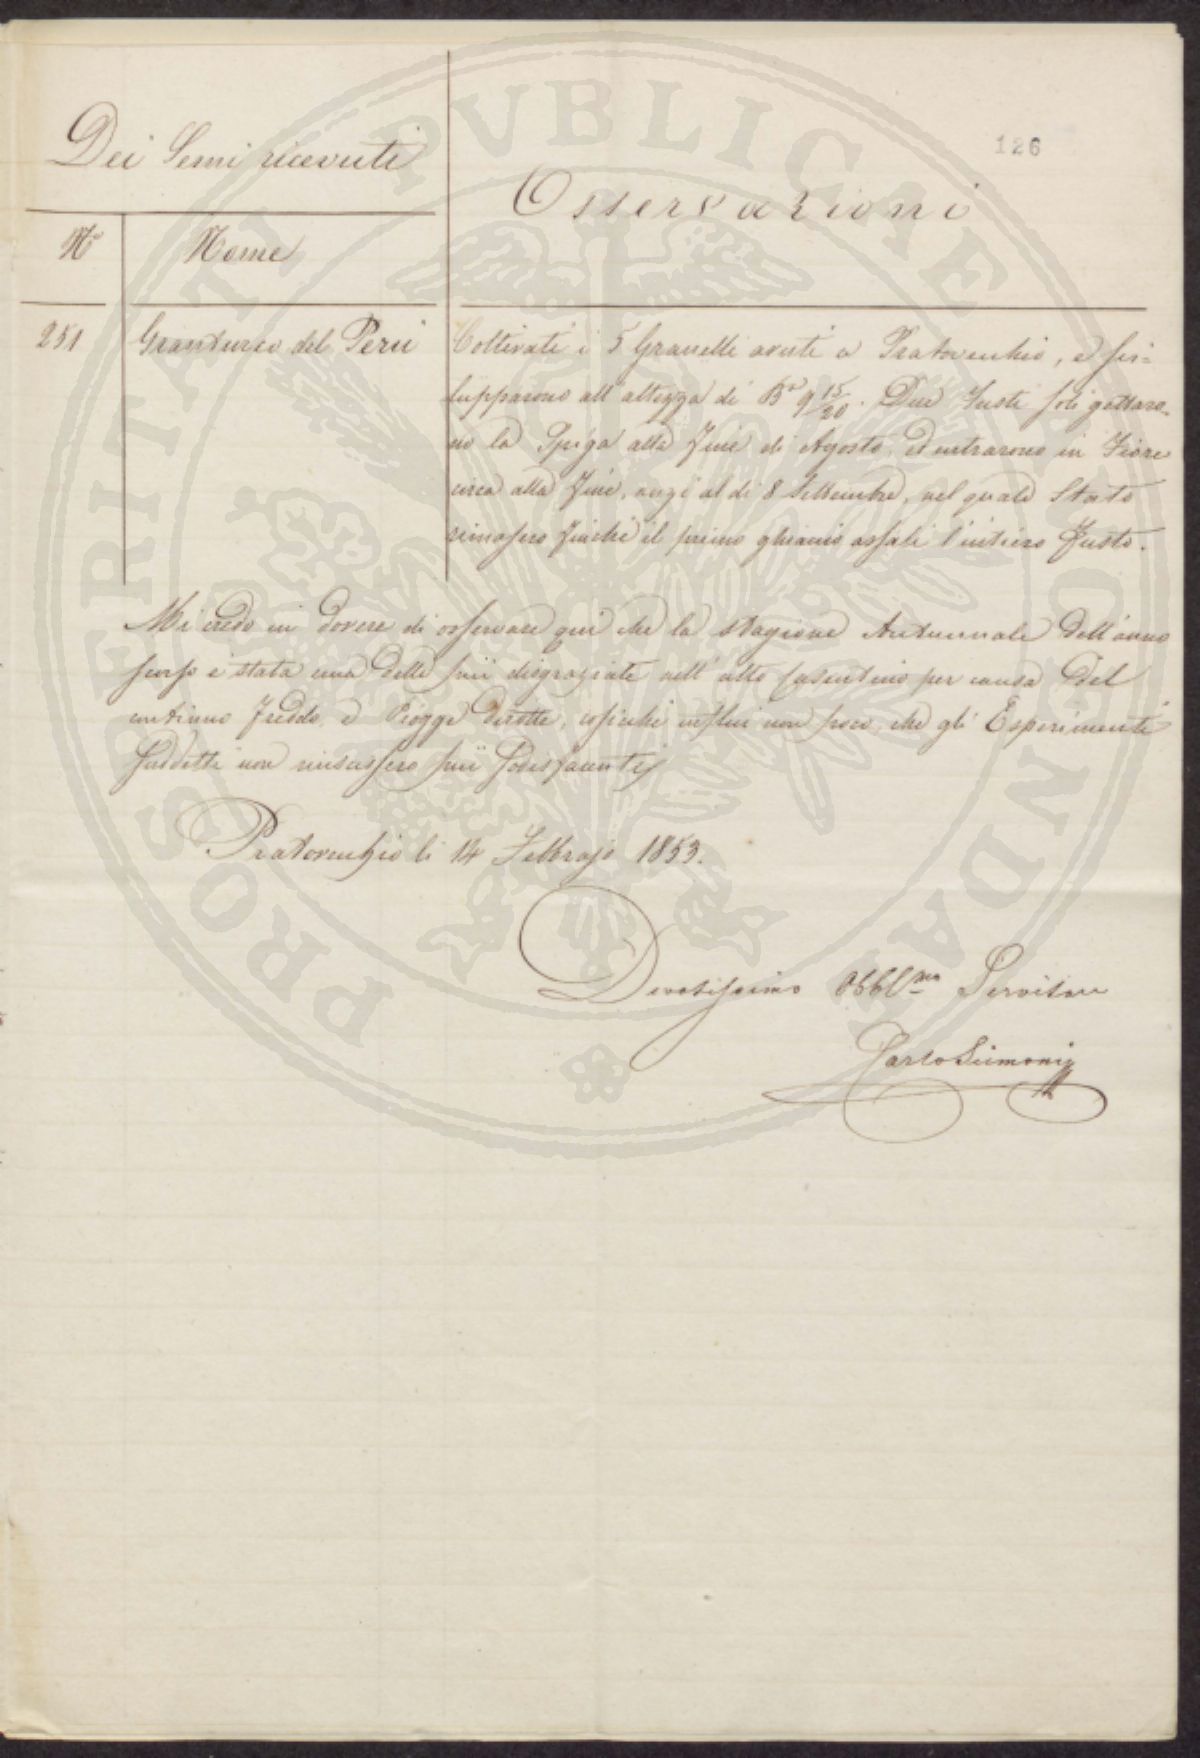 126
Dei Semi ricevuti
Osservazioni
No Nome
251 Granturco del Perù
Coltivati i 5 Granelli avuti a Pratovecchio, e svi=
lupparono all'altezza di Ba 9 15/20. Due Fusti soli gettaro=
no la Spiga alla fine di Agosto, ed entrarono in Fiore
circa alla fine, anzi al di 8 Settembre, nel quale Stato
rimasero finchè il primo ghiaccio assalì l'intiero Fusto.
Mi credo in dovere di osservare qui che la stagione Autunnale dell'anno
scorso è stata una delle più disgraziate nell'alto Casentino per causa del
continuo freddo, e Piogge dirotte, cosicchè influì non poco, che gli Esperimenti
suddetti non riuscissero più sodisfacenti
Pratovecchio li 14 Febbrajo 1853.
Devotissimo Obblmo Servitore
Carlo Siemoni
PROSPERITATI PVBLICAE AVGENDAE